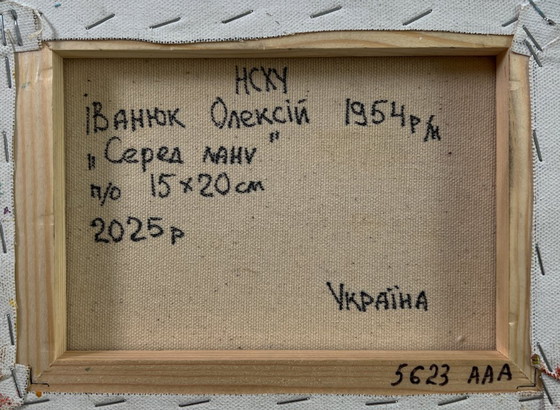 НСХУ
Іванюк Олексій 1954 р/н
„Серед лану"
п/о 15×20 см
2025 р
Україна
5623 ААА